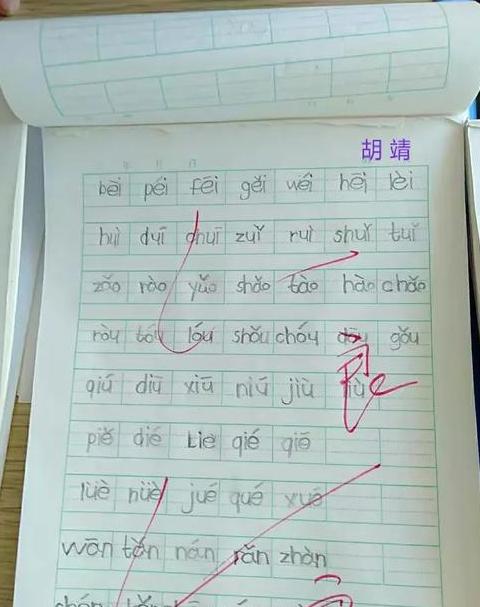 胡靖
bēi péi fēi gěi wéi hēi lèi
huì duī zuǐ ruì shuǐ tuǐ
zǎo rào yǎo shǎo tào hào chǎo
ròu tóu lóu shǒu chóu gǒu
qiú diū xiū niú jiù
piě dié Lie qié qiē
lüè nüè jué qué xué
wān tǎn nán rǎn zhàn